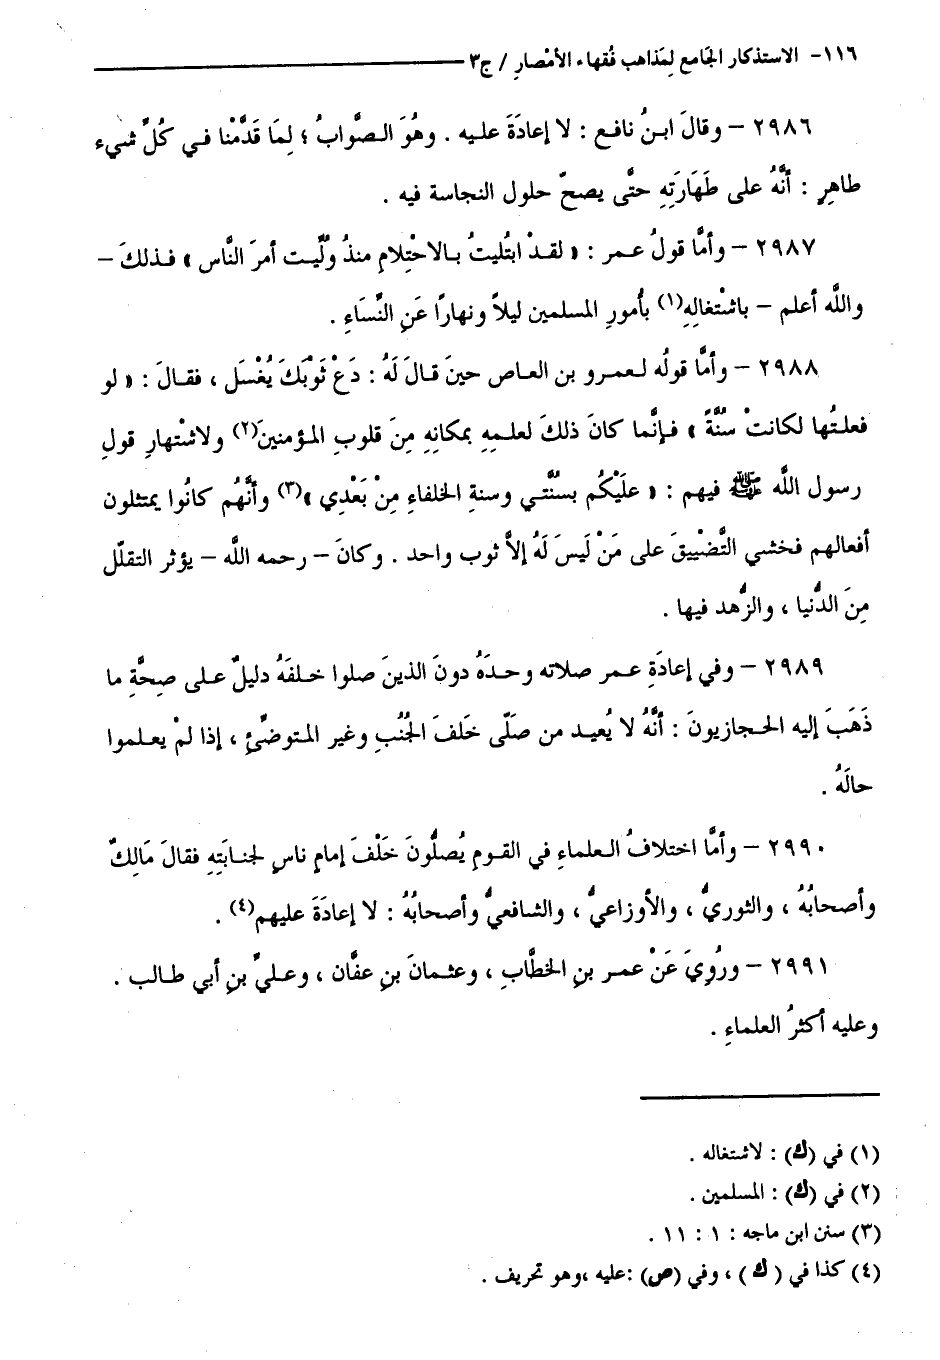 ١١٦- الاستذكار الجَامع لِمَذاهب فُقهاء الأمْصارِ / ج٣
٢٩٨٦ – وقالَ ابنُ نافع : لا إعادَةَ عليه . وهُوَ الصَّوابُ ؛ لِمَا قَدَّمْنا في كُلِّ شيء
طاهِرٍ : أنَّهُ على طَهَارَتِهِ حتَّى يصحّ حلول النجاسة فيه .
٢٩٨٧ – وأمَّا قولُ عمر : « لقدْ ابتُليتُ بالاحْتِلامِ منذُ وُلِّيت أمرَ النَّاس » فذلكَ –
واللَّه أعلم – باشْتغالِهِ(١) بأمورِ المسلمين ليلاً ونهارًا عَنِ النِّسَاءِ .
٢٩٨٨ – وأمَّا قولُه لعمرو بن العاص حينَ قالَ لَهُ : دَعْ ثَوْبَكَ يُغْسَل ، فقالَ : « لو
فعلتُها لكانتْ سُنَّةً » فإنَّما كانَ ذلكَ لعلمِهِ بمكانِهِ مِنَ قلوبِ المؤمنينَ(٢) ولاشْتهارِ قولِ
رسول اللَّه ﷺ فيهم : « علَيْكُم بسُنَّتي وسنةِ الخلفاءِ مِنْ بَعْدِي »(٣) وأنَّهُم كانُوا يمتثلون
أفعالهم فخشي التَّضْييقَ على مَنْ لَيسَ لَهُ إلاَّ ثوب واحد . وكانَ – رحمه اللَّه – يؤثر التقلّل
مِنَ الدُّنيا ، والزُّهد فيها .
٢٩٨٩ – وفي إعادَةِ عمر صلاته وحدَهُ دونَ الذينَ صلوا خلفَهُ دليلٌ على صِحَّةِ ما
ذَهَبَ إليه الحجازيونَ : أنَّهُ لا يُعيد من صَلّى خَلفَ الجُنُبِ وغير المتوضِّئِ ، إذا لمْ يعلموا
حالَهُ .
٢٩٩٠ – وأمَّا اختلافُ العلماءِ في القومِ يُصلُّونَ خَلْفَ إمامٍ ناسٍ لجنابَتِهِ فقالَ مَالِكٌ
وأصحابُهُ ، والثوريُّ ، والأوزاعيُّ ، والشافعيُّ وأصحابُهُ : لا إعادَةَ عليهم(٤) .
٢٩٩١ – ورُوِيَ عَنْ عمر بنِ الخطَّابِ ، وعثمانَ بنِ عفَّان ، وعليِّ بنِ أبي طالب .
وعليه أكثرُ العلماءِ .
(١) في (ك) : لاشتغاله .
(٢) في (ك) : المسلمين .
(٣) سنن ابن ماجه : ١ : ١١ .
(٤) كذا في ( ك ) ، وفي (ص) :عليه ،وهو تحريف .